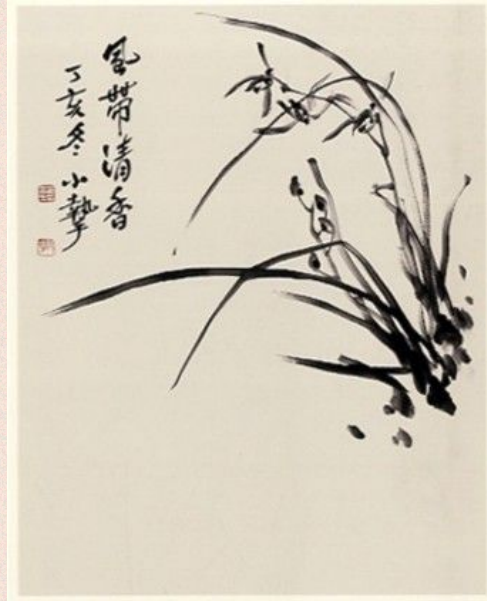 風帶清香
丁亥冬小摯